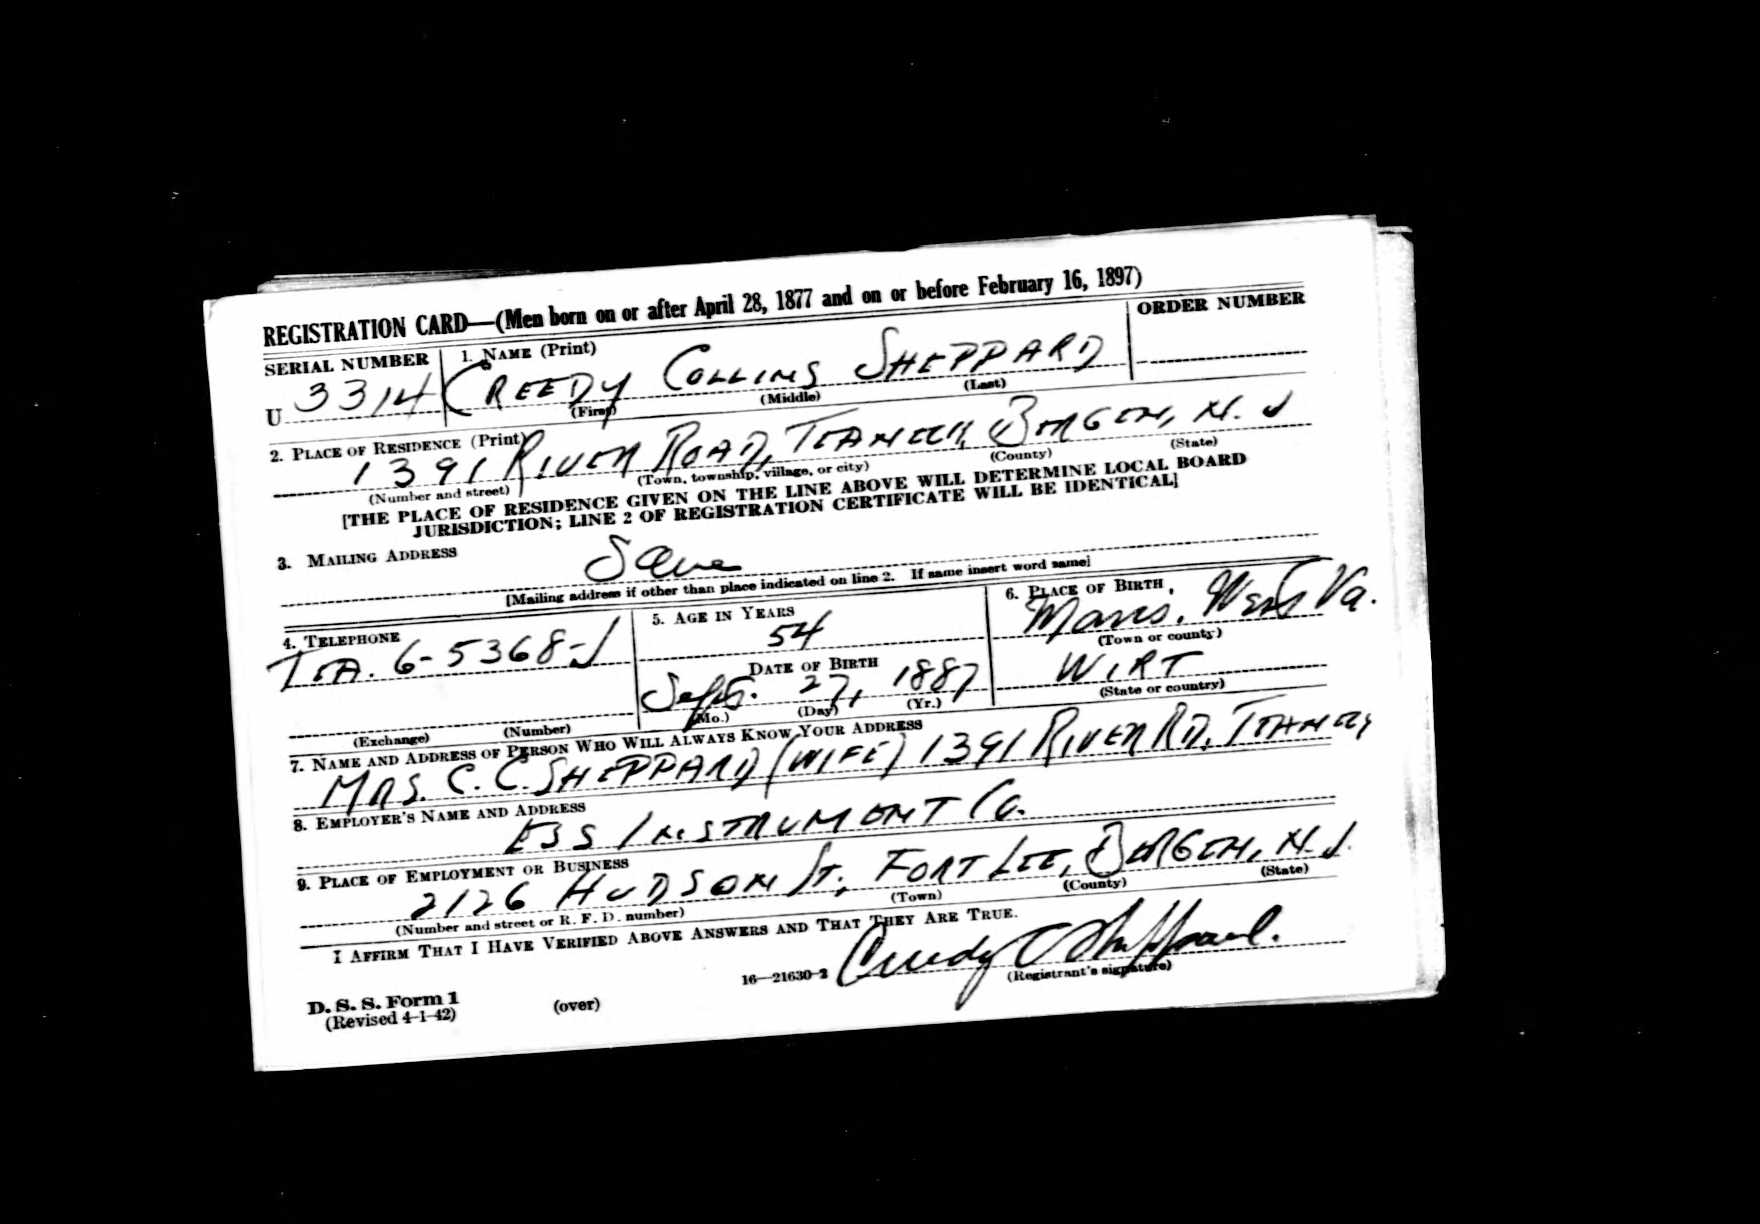 REGISTRATION CARD—(Men born on or after April 28, 1877 and on or before February 16, 1897)
SERIAL NUMBER 1. NAME (Print) ORDER NUMBER
U 3314 CREEDY COLLINS SHEPPARD
(First) (Middle) (Last)
2. PLACE OF RESIDENCE (Print)
1391 RIVER ROAD, TEANECK, BERGEN, N. J
(Number and street) (Town, township, village, or city) (County) (State)
[THE PLACE OF RESIDENCE GIVEN ON THE LINE ABOVE WILL DETERMINE LOCAL BOARD
JURISDICTION; LINE 2 OF REGISTRATION CERTIFICATE WILL BE IDENTICAL]
3. MAILING ADDRESS
Same
[Mailing address if other than place indicated on line 2. If same insert word same]
4. TELEPHONE 5. AGE IN YEARS 6. PLACE OF BIRTH
TEA. 6-5368-J 54 West Va.
(Town or county)
DATE OF BIRTH WIRT
Sept. 27, 1887 (State or country)
(Exchange) (Number) (Mo.) (Day) (Yr.)
7. NAME AND ADDRESS OF PERSON WHO WILL ALWAYS KNOW YOUR ADDRESS
MRS. C. C. SHEPPARD (WIFE) 1391 RIVER RD, TEANECK
8. EMPLOYER'S NAME AND ADDRESS
ESS INSTRUMENT Co.
9. PLACE OF EMPLOYMENT OR BUSINESS
2126 HUDSON ST, FORT LEE, BERGEN, N. J.
(Number and street or R. F. D. number) (Town) (County) (State)
I AFFIRM THAT I HAVE VERIFIED ABOVE ANSWERS AND THAT THEY ARE TRUE.
Creedy C Sheppard.
16—21630-2 (Registrant's signature)
D. S. S. Form 1
(Revised 4-1-42) (over)